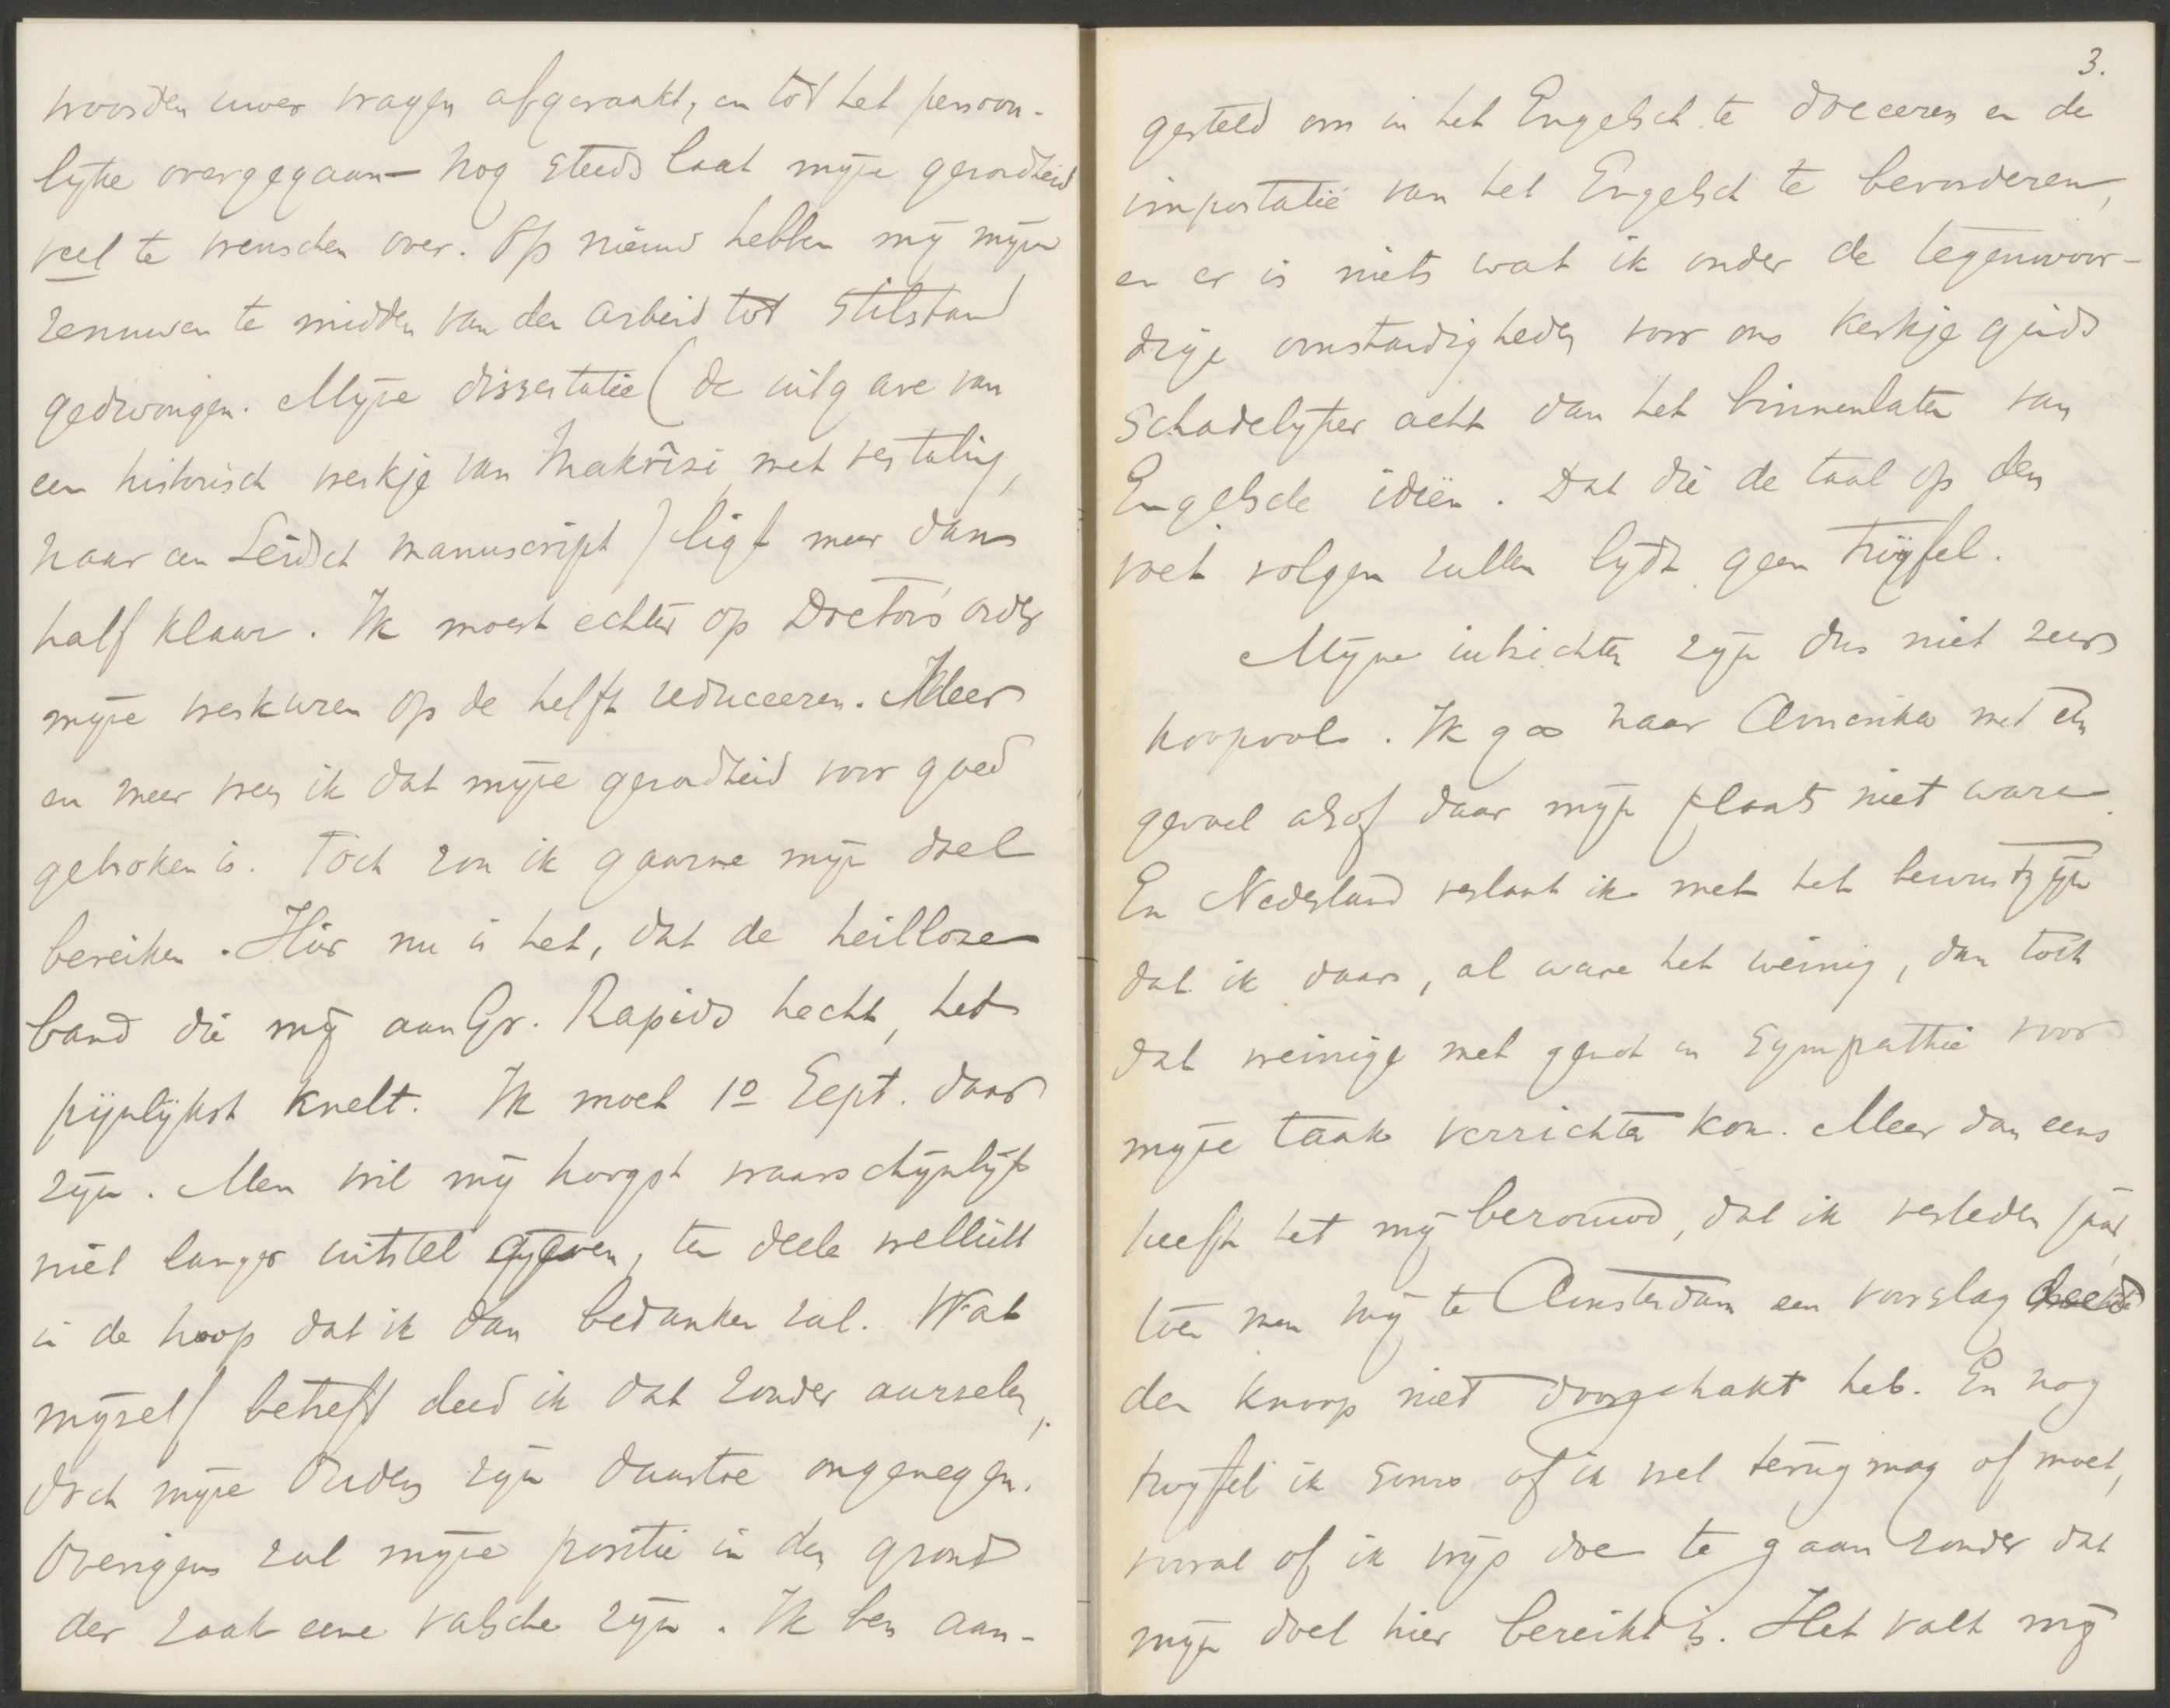 woorden uwer vragen afgeraakt, en tot het persoon-
lyke overgegaan — Nog steeds laat myne gezondheid
veel te wenschen over. Op nieuw hebben my myne
zenuwen te midden van den arbeid tot stilstand
gedwongen. Myne dissertatie (de uitgave van
een historisch werkje van Makrîsi met vertaling,
naar een Leidsch manuscript) ligt meer dan
half klaar. Ik moest echter op Doctors order
myne werkuren op de helft reduceeren. Meer
en meer vrees ik dat myne gezondheid voor goed
gebroken is. Toch zou ik gaarne myn doel
bereiken. Hier nu is het, dat de heillooze
band die my aan Gr. Rapids hecht, het
pijnlijkst knelt. Ik moet 1o Sept. daar
zyn. Men wil my hoogst waarschynlyk
niet langer uitstel geven, ten deele wellicht
in de hoop dat ik dan bedanken zal. Wat
myzelf betreft deed ik dat zonder aarzelen,
doch myne Ouders zyn daartoe ongenegen.
Overigens zal myne positie in den grond
der zaak eene valsche zyn. Ik ben aan-
3.
gesteld om in het Engelsch te doceeren en de
importatie van het Engelsch te bevorderen,
en er is niets wat ik onder de tegenwoor-
dige omstandigheden voor ons kerkje ginds
schadelyker acht dan het binnenlaten van
Engelsche ideën. Dat die de taal op den
voet volgen zullen lydt geen twyfel.
Myne inzichten zyn dus niet zeer
hoopvol. Ik ga naar Amerika met een
gevoel alsof daar myn plaats niet ware.
En Nederland verlaat ik met het bewustzyn
dat ik daar, al ware het weinig, dan toch
dat weinige met genot en sympathie voor
myne taak verrichten kon. Meer dan eens
heeft het my berouwd, dat ik verleden jaar,
toen men my te Amsterdam een voorslag deed
den knoop niet doorgehakt heb. En nog
twyfel ik soms of ik wel terug mag of moet,
vooral of ik wys doe te gaan zonder dat
myn doel hier bereikt is. Het valt my